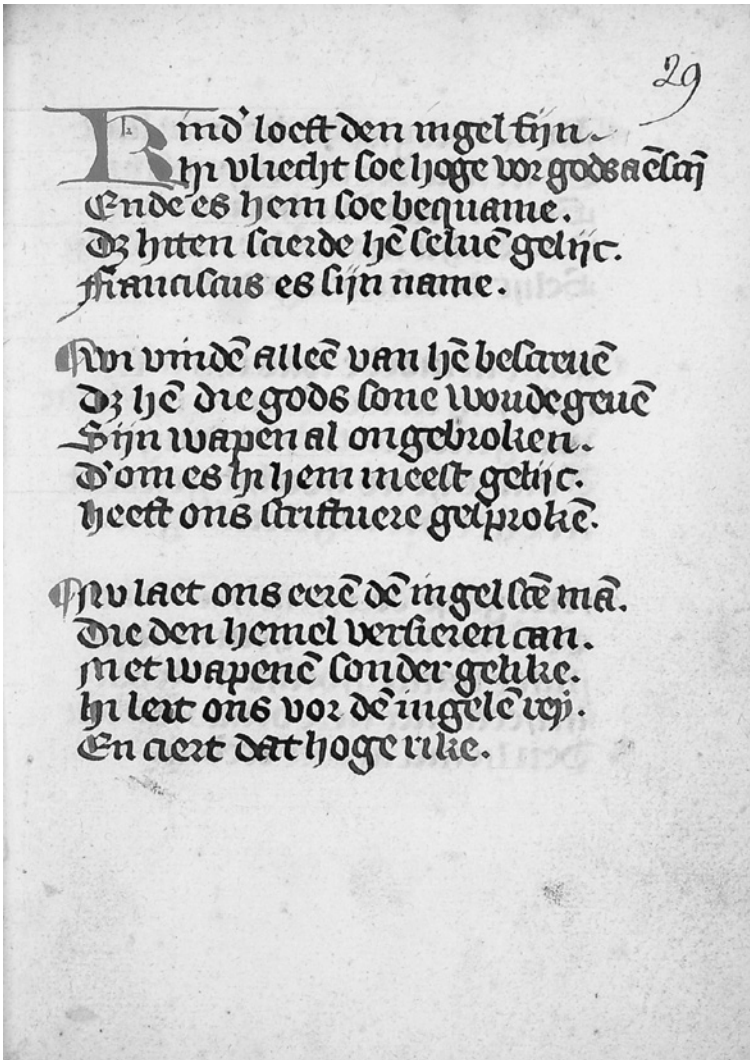 29
Kind' loeft den ingel fijn.
Hi vliecht soe hoge vor gods aẽscij
Ende es hem soe bequame.
Dꝫ hiten scierde hẽ seluẽ gelijc.
Franciscus es sijn name.
Wi vindẽ alleẽ van hẽ bescreuẽ
Dꝫ hẽ die gods sone woude geuẽ
Sijn wapen al ongebroken.
D'om es hi hem meest gelijc.
Heeft ons scriftuere gesprokẽ.
Nu laet ons eerẽ dẽ ingelscẽ mã.
Die den hemel versieren can.
Met wapenẽ sonder gelike.
Hi leit ons vor dẽ ingelẽ rey.
En ciert dat hoge rike.